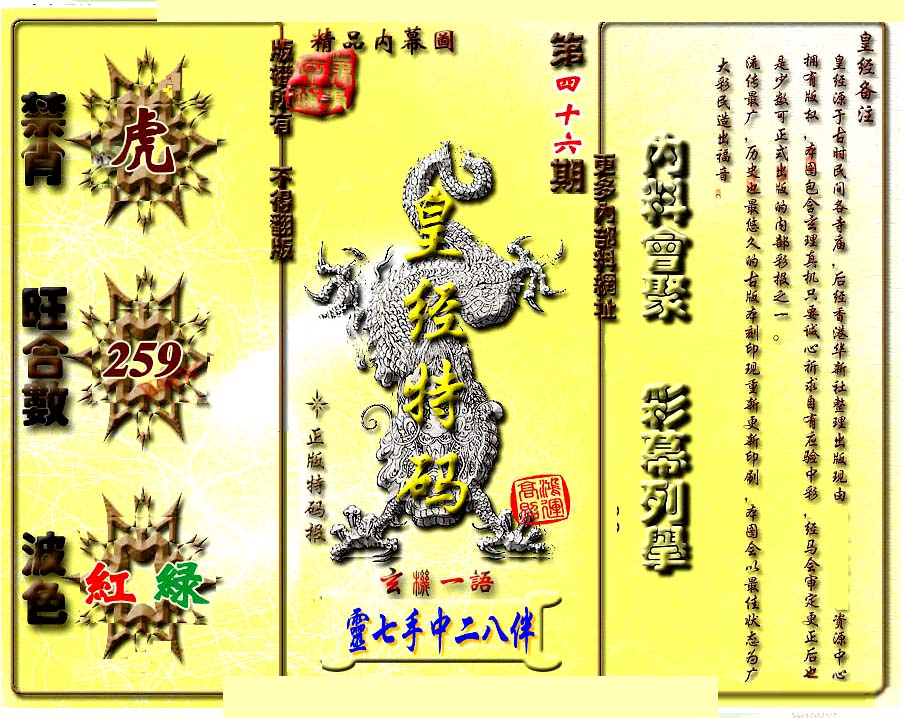 皇经备注
皇经源于古时民间各寺庙，后经香港华新社整理出版现由 资源中心
拥有版权，本图包含玄理真机只要诚心祈求自有应验中彩，经马会审定更正后也
是少数可正式出版的内部彩报之一。
流传最广，历史也最悠久的古版本刻印现重新更新印刷，本图会以最佳状态为广
大彩民造出福音
内料會聚
彩幕列擧
更多內部料網址
第四十六期
精品内幕圖
皇经特码
鴻運高照
正版特码报
玄機一語
靈七手中二八伴
版權所有 不得翻版
禁肖
虎
旺合數
259
波色
紅 綠